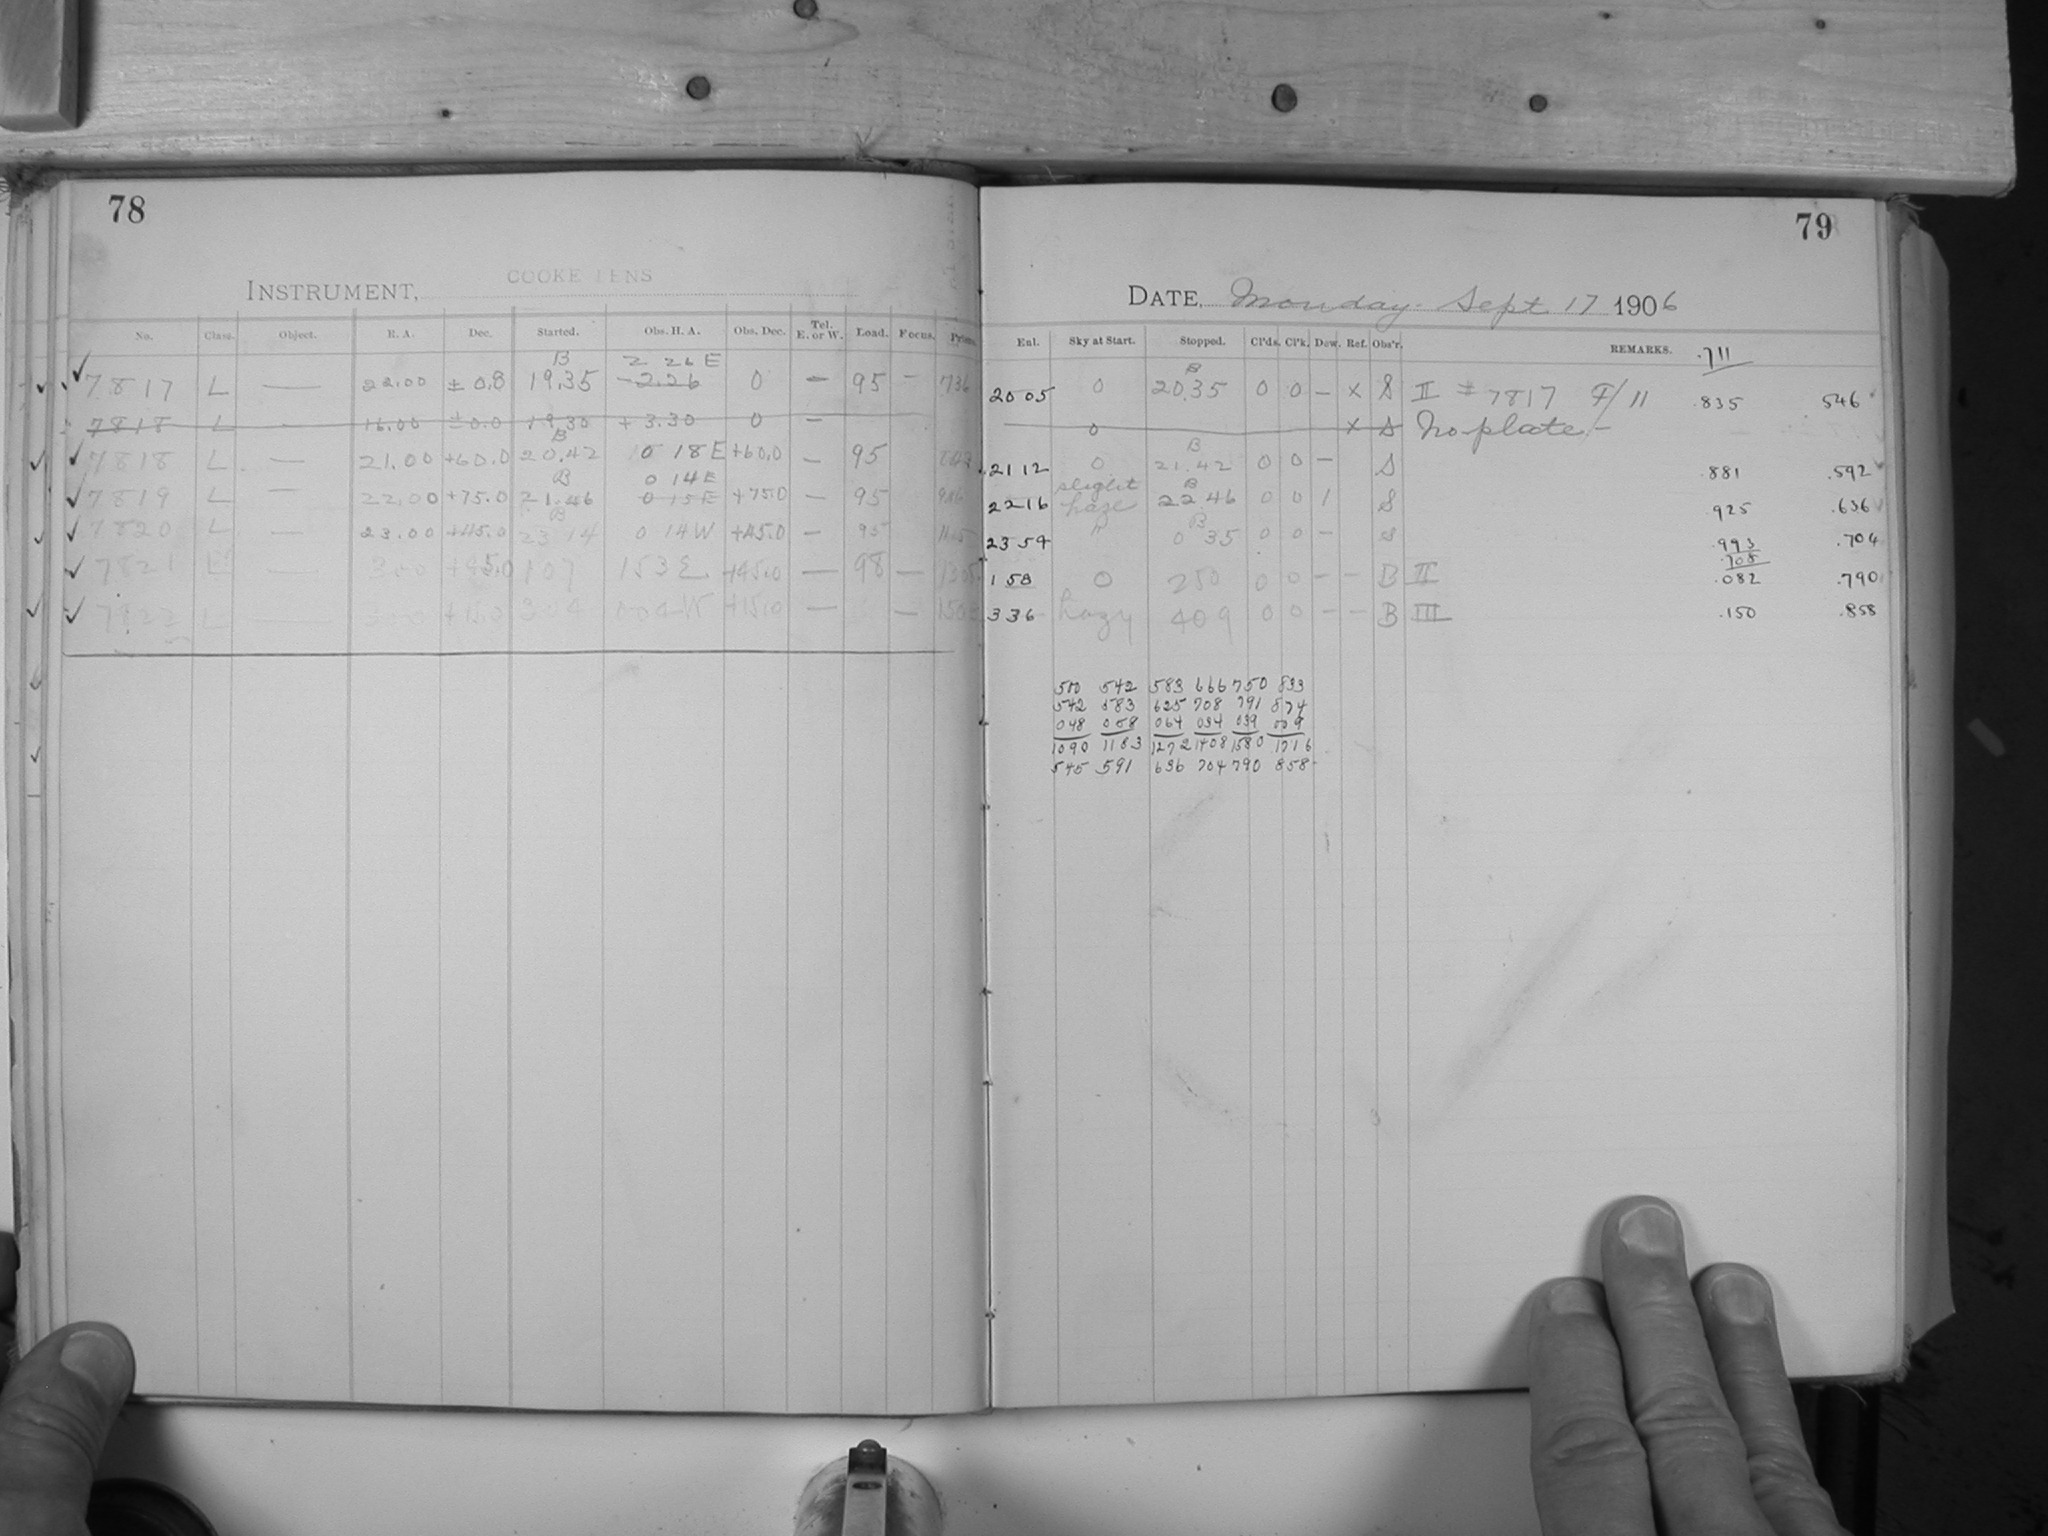 78
INSTRUMENT, COOKE LENS
No. Class. Object. R. A. Dec. Started. Obs. H. A. Obs. Dec. Tel. E. or W. Load. Focus.
B 2 26 E
7817 L — 22.00 ± 0.8 19.35 -2.26 0 — 95 — 736
7818 L — 16.00 ±0.0 19.30 + 3.30 0 —
B
7818 L — 21.00 +60.0 20.42 0 18 E +60.0 — 95
B 0 14 E
7819 L — 22.00 +75.0 21.46 0 15 E +75.0 — 95
B
7820 L — 23.00 +45.0 23 14 0 14 W +45.0 — 95
7821 — 300 +45.0 107 153 E +45.0 — 98 —
7822 L — +15.0 304 004 W +15.0 — —
79
DATE, Monday Sept 17 1906
Enl. Sky at Start. Stopped. Cl'ds. Cl'k. Dew. Ref. Obs'r. REMARKS. .711
B
20 05 0 20.35 0 0 — x S II # 7817 F/11 .835 546
0 x S No plate —
B
21 12 0 21.42 0 0 — S .881 .592
slight B
22 16 haze 22 46 0 0 1 S .925 .636
B
23 54 " 0 35 0 0 — S .993 .704
.708
1 58 0 250 0 0 — — B II .082 .790
3 36 hazy 409 0 0 — — B III .150 .858
500 542 583 666 750 833
542 583 625 708 791 874
048 058 064 034 039 009
1090 1183 1272 1408 1580 1716
545 591 636 704 790 858